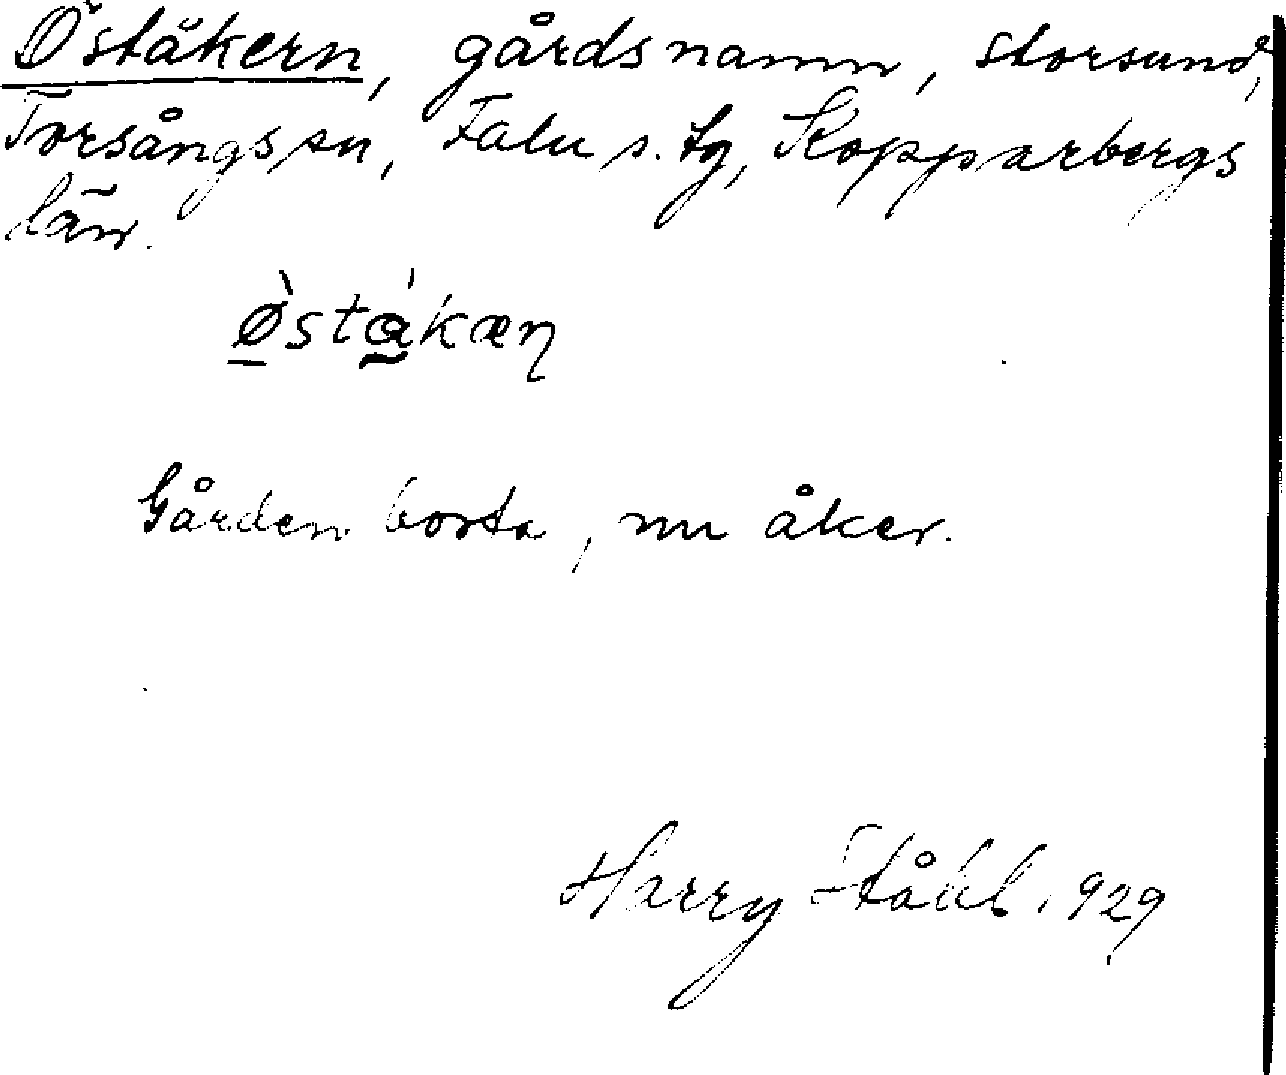 Öståkern, gårdsnamn, Storsund,
Torsångs sn, Falu s. tg, Kopparbergs
län.
Øståkæn
Gården borta, nu åker.
Harry Ståhl. 1929